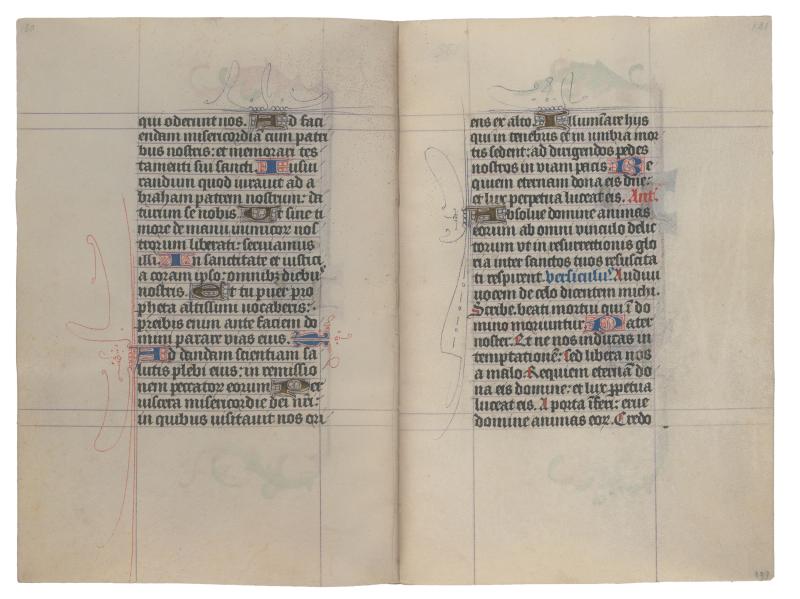 qui oderunt nos. Ad faci
endam misericordia cum patri
bus nostris: et memorari tes
tamenti sui sancti. Iusiu
randum quod iurauit ad a
braham patrem nostrum: da
turum se nobis. Ut sine ti
more de manu inimicor̄ nos
trorum liberati: seruiamus
illi. In sanctitate et iustici
a coram ipso: omnibꝫ diebuˢ
nostris. Et tu puer pro
pheta altissimi vocaberis:
preibis enim ante faciem do
mini parare vias eius.
Ad dandam scientiam sa
lutis plebi eius: in remissio
nem peccator̄ eorum Per
uiscera misericordie dei nr̄i:
in quibus visitauit nos ori
131
ens ex alto. Illuminare hijs
qui in tenebris et in umbra mor
tis sedent: ad dirigendos pedes
nostros in viam pacis Re
quiem eternam dona eis dn̄e:
et lux perpetua luceat eis. Ant̄.
Absolue domine animas
eorum ab omni vinculo delic
torum vt in resurrectionis glo
ria inter sanctos tuos resuscita
ti respirent. versiculuˢ. Audiui
uocem de celo dicentem michi.
Scribe. beati mortui qui ī do
mino moriuntur Pater
noster. Et ne nos inducas in
temptationē: sed libera nos
a malo. Requiem eternā do
na eis domine: et lux ꝑpetua
luceat eis. A porta īferi: erue
domine animas eor̄. Credo